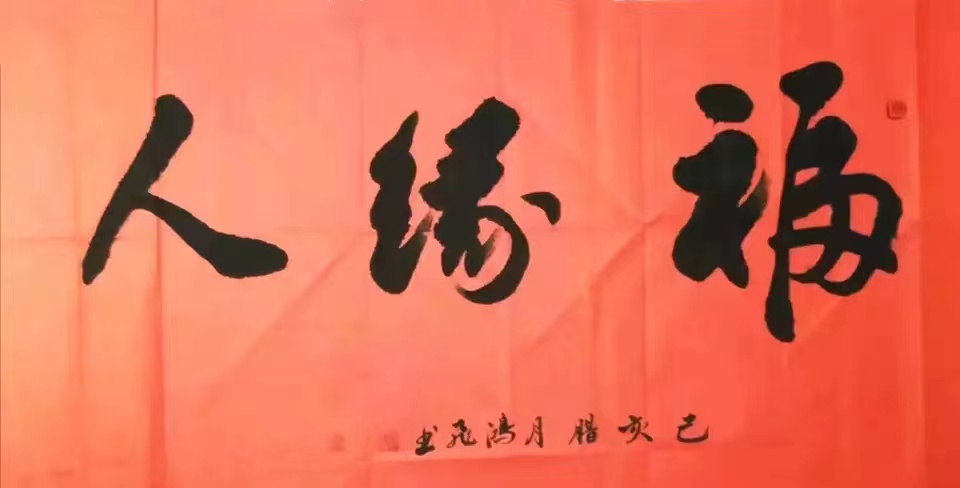 福缘人
己亥腊月鸿飞书